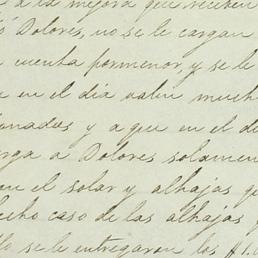 a la mejora que reciben
Dolores, no se le cargan
cuenta pormenor, y se le
en el día valen much
y a que en el d
rga a Dolores solamen
en el solar y alhajas q
echo caso de las alhajas y
lo se le entregaron los $1.0